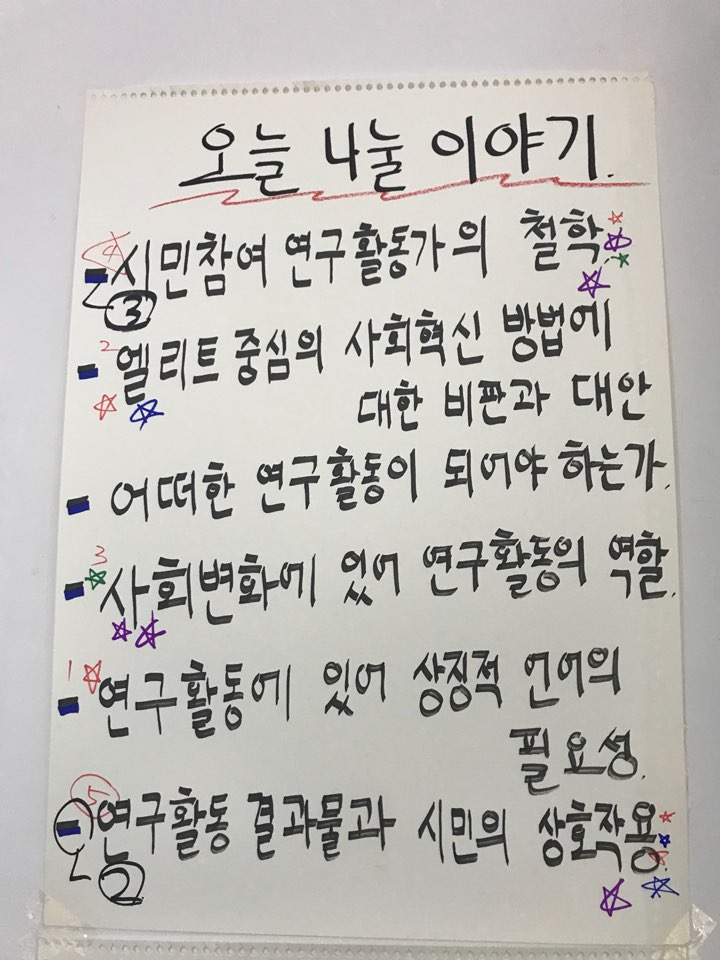 오늘 나눌 이야기.
4
- 시민참여 연구활동가의 철학.
3
2
- 엘리트 중심의 사회혁신 방법에
대한 비판과 대안
- 어떠한 연구활동이 되어야 하는가.
3
- 사회변화에 있어 연구활동의 역할.
1
- 연구활동에 있어 상징적 언어의
필요성.
5
- 연구활동 결과물과 시민의 상호작용.
2